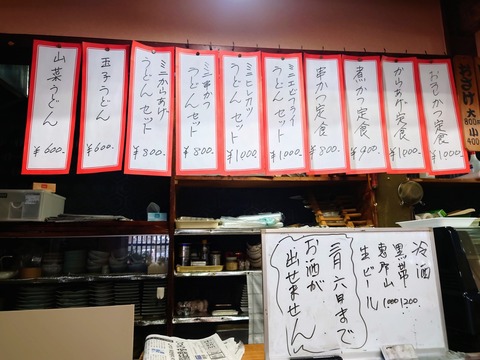 おさけ
大
800円
小
400
おろしかつ定食
¥1000.
からあげ定食
¥1000.
煮かつ定食
¥900.
串かつ定食
¥800.
ミニエビフライ
うどんセット
¥1000.
ミニヒレカツ
うどんセット
¥1000.
ミニ串かつ
うどんセット
¥800.
ミニからあげ
うどんセット
¥800.
玉子うどん
¥600.
山菜うどん
¥600.
冷酒
黒帯 1200
恵那山 1000
生ビール
三月六日まで
お酒が
出せません